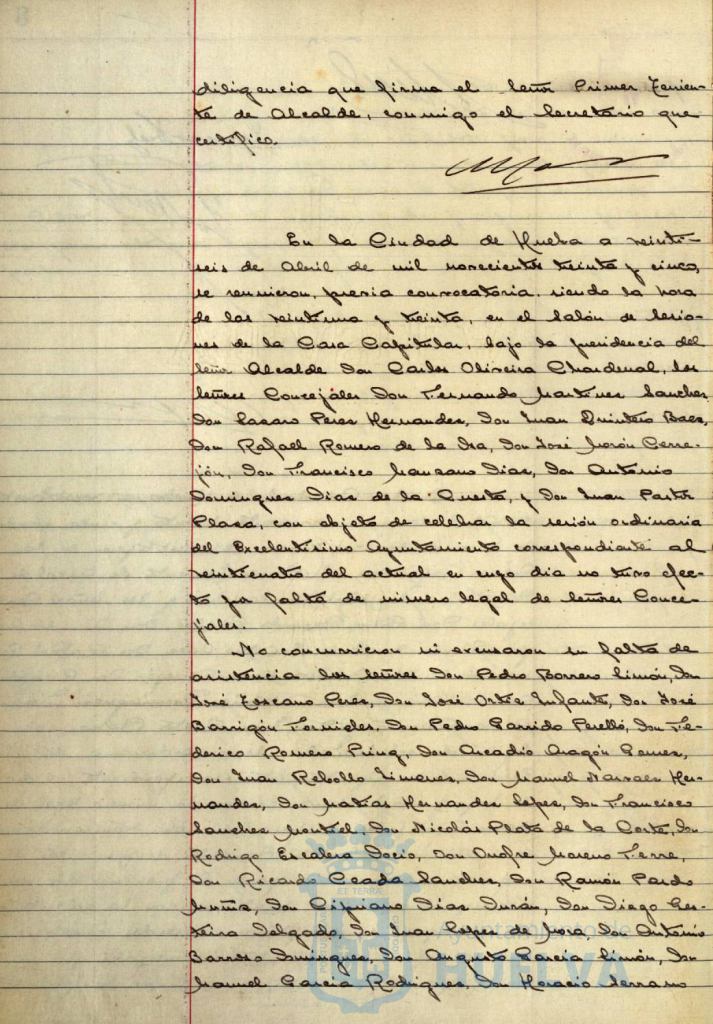 diligencia que firma el Señor Primer Tenien-
te de Alcalde, conmigo el Secretario que
certifico.
En la Ciudad de Huelva a veinti-
seis de Abril de mil novecientos treinta y cinco,
se reunieron, previa convocatoria, siendo la hora
de las veintiuna y treinta, en el Salón de Sesio-
nes de la Casa Capitular, bajo la presidencia del
Señor Alcalde Don Carlos Oliveira Chardenal, los
Señores Concejales Don Fernando Martinez Sanchez,
Don Lazaro Perez Hernandez, Don Juan Quintero Baez,
Don Rafael Romero de la Isa, Don José Morón Cerre-
jón, Don Francisco Manzano Diaz, Don Antonio
Dominguez Diaz de la Cuesta, y Don Juan Pastor
Plaza, con objeto de celebrar la sesión ordinaria
del Excelentísimo Ayuntamiento correspondiente al
veinticuatro del actual en cuyo dia no tuvo efec-
to por falta de número legal de Señores Conce-
jales.
No concurrieron ni excusaron su falta de
asistencia los Señores Don Pedro Borrero Limón, Don
José Toscano Perez, Don José Ortiz Infante, Don José
Barrigón Fornieles, Don Pedro Garrido Perelló, Don Fe-
derico Romero Ping, Don Arcadio Aragón Gomez,
Don Juan Rebollo Jimenez, Don Manuel Narvaez Her-
nandez, Don Matias Hernandez Lopez, Don Francisco
Sanchez Montiel, Don Nicolás Plata de la Corte, Don
Rodrigo Escalera Docio, Don Onofre Moreno Ferre,
Don Ricardo Ceada Sanchez, Don Ramón Pardo
Muñiz, Don Cipriano Diaz Durán, Don Diego Ges-
teira Delgado, Don Juan Lopez de Mora, Don Antonio
Barroso Dominguez, Don Augusto Garcia Limón, Don
Manuel Garcia Rodriguez, Don Horacio Serrano
Ayuntamiento de
HUELVA